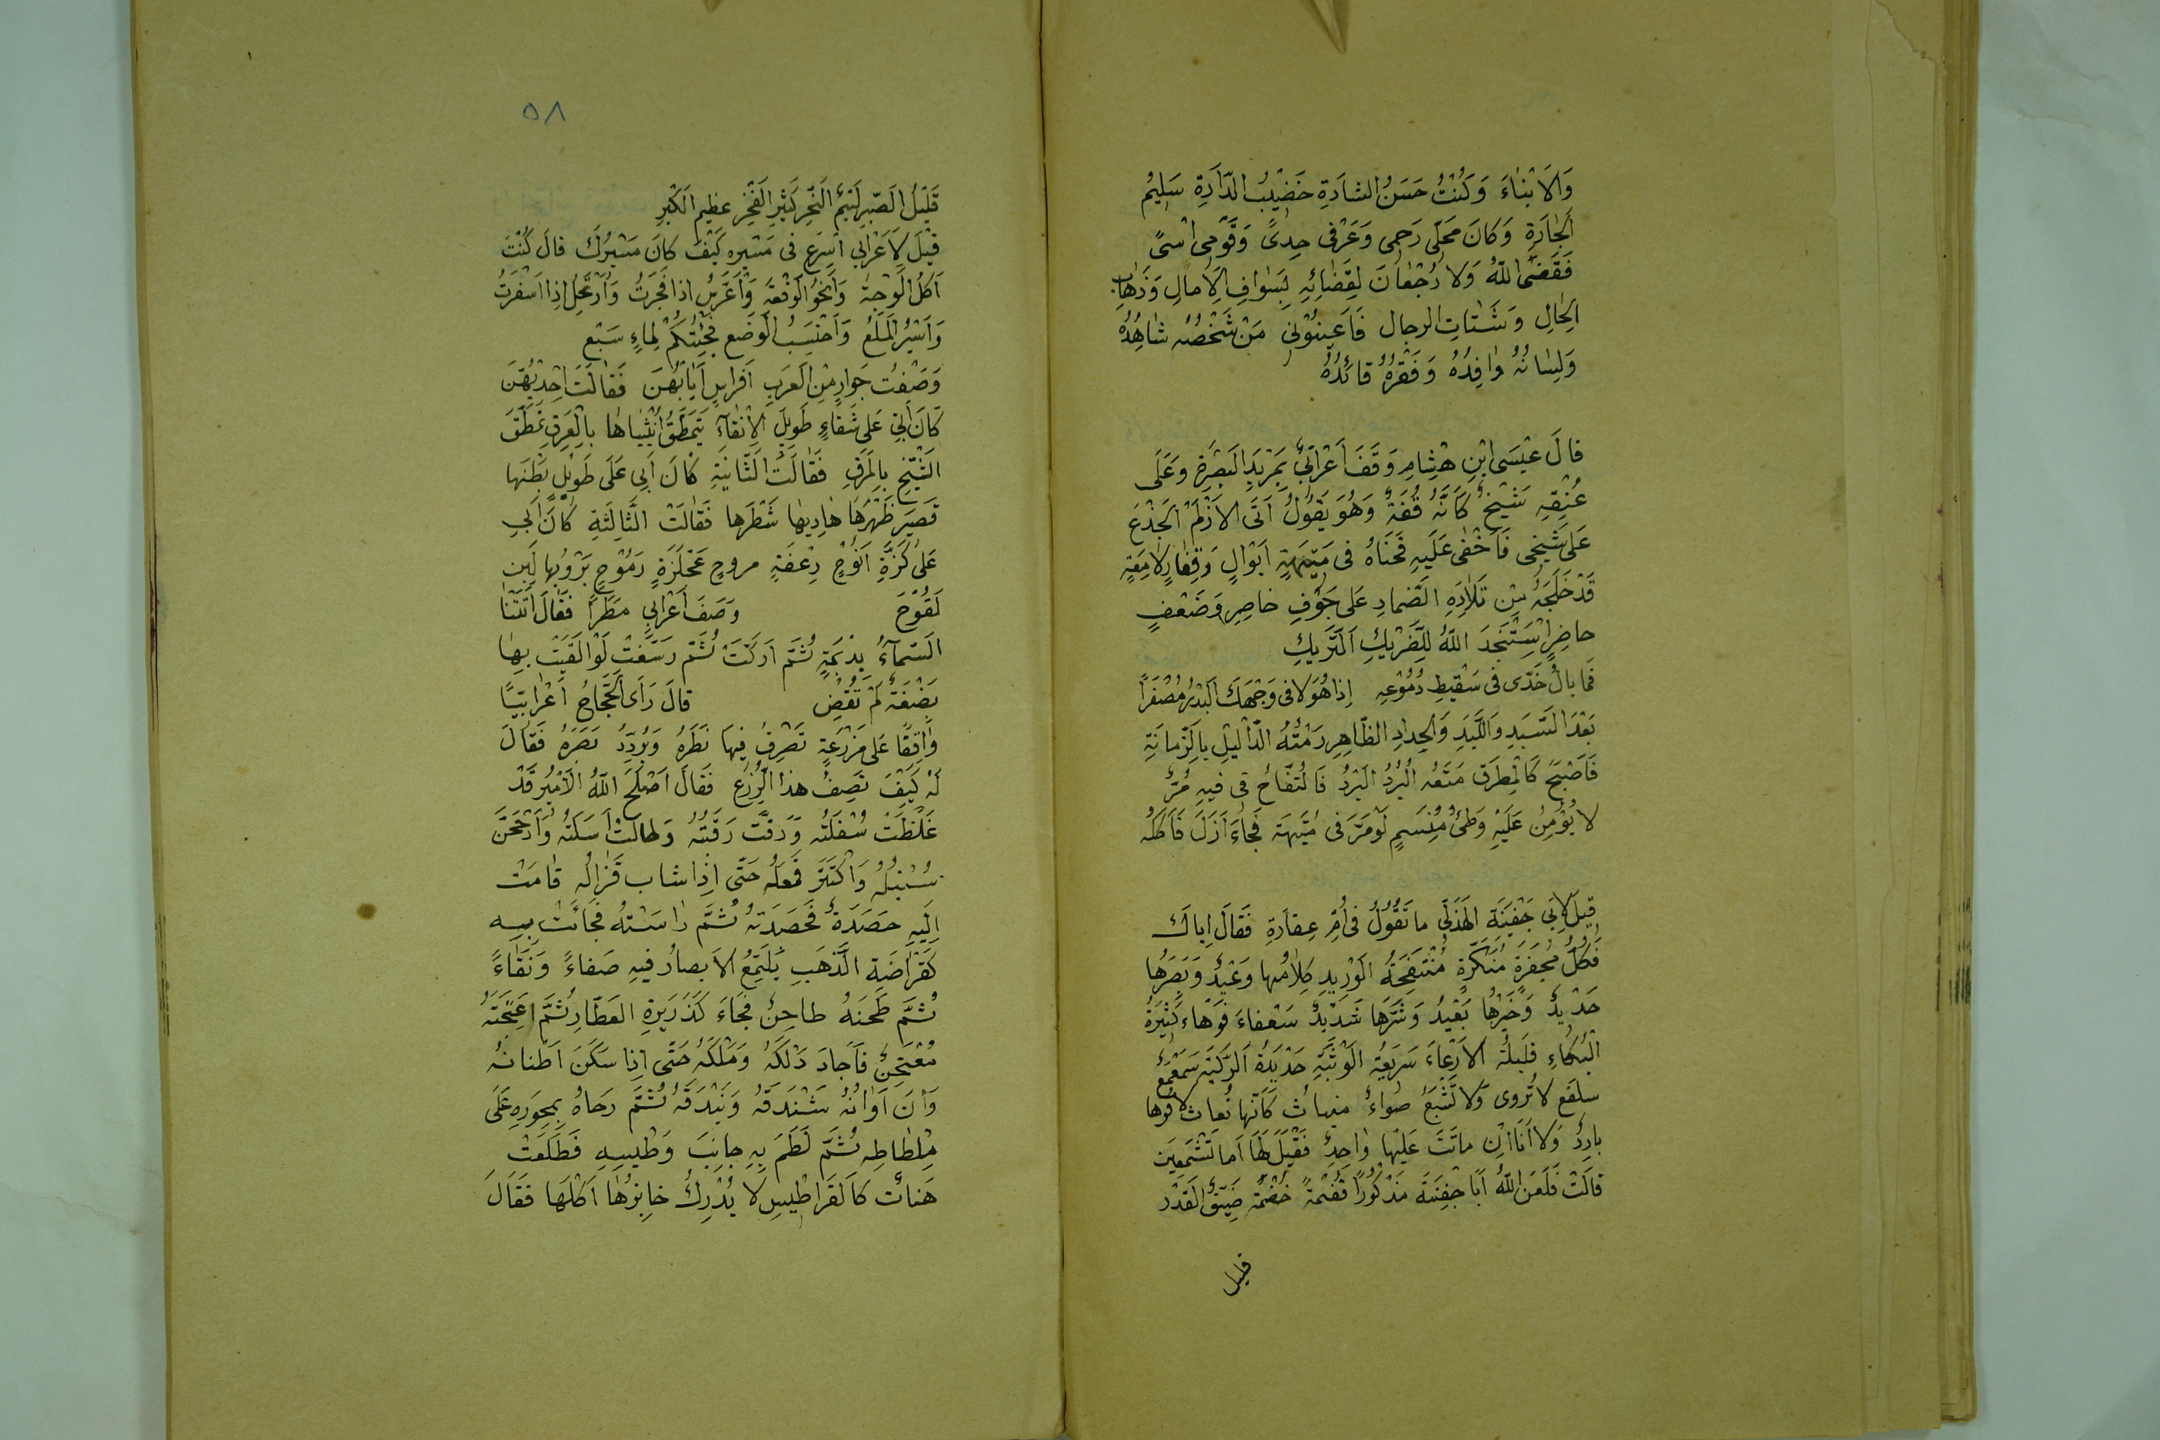 وَالاَبْنَاءَ وَكُنْتُ حَسَنُ الشادَةِ خَضِيْبُ الدّارَةِ سَلِيمُ
الجَارَةِ وَكانَ مَحَلّى رَحمى وَعَرْفى حِدىً وَقَوْمِى اسًى
فَقَضَى اللّهُ وَلا رُجْعانَ لِقَضائِهِ بِسَوافِ الاَمالِ وَذَهابِ
الحِالِ وَشَتاتِ الرجالِ فَاَعِينُوْنى مَنْ شَخْصُه شاهِدُهُ
وَلِسانُهُ وافِدُهُ وَفَقْرُهُ قائِدُهُ
قالَ عيْسَى ابْنِ هشِامِ وَقَفَ اَعْرابَيٌ بِمَربَدِ البَصْرَةِ وَعَلَى
عُنُقِهِ شَيْخٌ كَاَنَّهُ قُفَةٌ وَهُوَ يَقُولُ اَتَى الاَزْلَمْ الجَذَعَ
عَلى شَيْخى فَاَخْفى عَلَيهِ فَحَناهُ فى
قَدْ خَلَجَهُ مِنْ تَلادِهِ الضَّمادِ عَلى جَوْفٍ خاصِرٍ وَضَعْفٍ
حاضِرٍ اسْتَنْجَدَ اللّهُ لِلضَّرِيْكِ التَرِيكِ
فَما بالُ خَدّى فى سَقِيطِ دُمُوْعِهِ اِذا هُوَ لافى وَجْهَكَ البَدْرُ مُصْفَرّاً
بَعْدَ السَّبَدِ وَاللَّبَدِ وَالجِدادِ الظّاهِرِ رَمَتْهُ الدَّاليلِ بِالزَّمانَةِ
فَاَصْبَحَ كَالمِطرَق مَتَعَهُ البُرْدُ البَرْدُ فَالتُفّاحُ فى فيهِ مُرٌّ
لا يُؤْمِنُ عَلَيْهِ وَطئُ مُنْسَيمٍ لَوْ مَرَّ فى مُتَيَهَة فَجاءَ اَزَلَ فَاَطَلَه
قيلَ لاِبى جَفِنَة الهَذَلى ما تَقُوُلُ فى اُمِّ عِقارَةِ فَقَالَ اِياكَ
فَكُلُّ مُجفِرَةٍ مُنكَرَةٍ مُنْتَفِجَةُ الوَرِيدِ كِلامُها وَعْيدٌ وَبَصَرُها
حَدِيْدٌ وَخَيْرُها بَعْيدٌ وَشَرَّها شَدْيدٌ سَعْفاءَ فَوْهاءِ كَثِيْرَةُ
البُكاءِ قَلَيلَةُ الاِرْعاءَ سَريعَةِ الوَثْبَةِ حَدْيدَةُ الرَّكبَةِ سَمَعمَعٌ
سلفَع لا تُروى وَلا تَشْبَعُ كَاَنّها نُعاب لافُوها
بارِدٌ وَلا اَنَا اِنْ ماتَتَ عَلَيْها واجِدٌ فَقيْلَ لَهَا اَما تَسْمَعِينَ
قالَتْ فَلَعَنَ اللّهُ اَبَا جَفِنَة مَذْكُوراً قُثْمَةً خُضْمَةً ضَيّقُ القَدْر
قليل
٥٨
قَليْلُ الصَبْرِ لَئيْمُ النَّجْرِ كَثِيْرِ الفَخْرِ عَظيمِ الكَبْرِ
قيْلَ لاَعْرابي اَسرَع فى مَسْيرِه كَيْفَ كانَ مَسْيرُكَ قالَ كُنْتَ
اَكلُ الوَجبَة وَاَنحوُ الوَقْعَة وَاُعَرِّسُ اذا فَجَرَتُ وَاَرْتَحِلُ اِذا اَسْفَرَتُ
وَاَسيْرُ المَلْعَ وَاَجْتَنِبُ الوَضَعَ فَجِئْتُكُمْ لِماءِ سَبْع
وَصَفَتْ جَوارٍ مِنَ العَرَبِ اَفراسِ آبائِهُنَّ فَقالَتَ اِحْديهُنّ
كانَ اَبى عَلى شَقّاءِ طَويلَ الاِنْقاءَ يَتَمَطَقُ اُنْثَياها بِالعَرَقِ تَمَطُّقَ
الشيّخِ بِالمَرَقِ فَقالَتْ الثّانيَةِ كانَ اَبِى عَلى طَويْلٍ بَطْنَها
قَصيَر ظَهْرُها هادِيها شَطْرَها فَقالَتْ الثّالِثَةِ كانَ اَبى
عَلى كَزَّةِ اَنُوحٍ مروحٍ عَجْلَزَةٍ رَمُوْحٍ يَرْوُيها لَبن
لَقُوْحَ وَصَفَ اَعْرابى مَطَراً فَقالَ اَتَتْنا
السَمآءُ بِدْيمَةٍ ثُمَّ اَركَتْ ثُمَّ رَسَّغَتْ لَوْ اَلقَيْتَ بِها
بَضْعَةٌ لَمْ تَقُضِ قالَ رَاَى الحَجّاجُ اَعْرابيّاً
واقِفًا عَلى مَزْرَعَةٍ تَصْرِفُ فِيها نَظَرَهُ وَيُرَدِّدُ بَصَرهُ فَقالَ
لَهُ كَيْفَ تَصِفُ هذا الزَرْع فَقالَ اَصْلَحَ اللّهُ الاَمْيرُ قَدْ
غَلظَتْ سُفْلَتُه وَدَقَّتَ رَقَبَتُهُ وَطالَتْ اَسَلَتُهُ وَارْجَحَنَّ
سُنْبُلُهُ وَاكْتَنَزَ قَمَعَلُه حَتّى اِذا شابَ قَزالُه قامَتْ
اِلَيهِ حَصَدَةٌ فَحَصَدَتْهُ ثُمَّ داسَتْهُ فَجائَتْ بِه
كَقراضَةِ الذَّهَبِ يَلتَمِعُ الاَبصارُ فيهِ صَفاءً وَنَقاءً
ثُمَّ طَحَنَهُ طاحِنٌ فَجاءَ كَذَرِيَرةِ العَطّارِ ثُمَّ اعْتَجَنَهُ
مُعْتَجِنٌ فَاَجادَ دَلَكَهُ وَمَلَكَهُ حَتى اِذا سَكَنَ اَطْنانُهُ
وَانَ اَوانُهُ شَنْدَقَهُ وَبَنْدَقَهُ ثُمَّ رَحاهُ بِمِحِوَرِهِ عَلى
مِلْطاطِه ثُمَّ لَطَمَ بِهِ جانِبَ وَطِيْسِهِ فَطَلَعَتْ
هَناتٌ كَالقَراطْيسِ لا يُدْرِكُ خابِزُها اَكْلَها فَقالَ